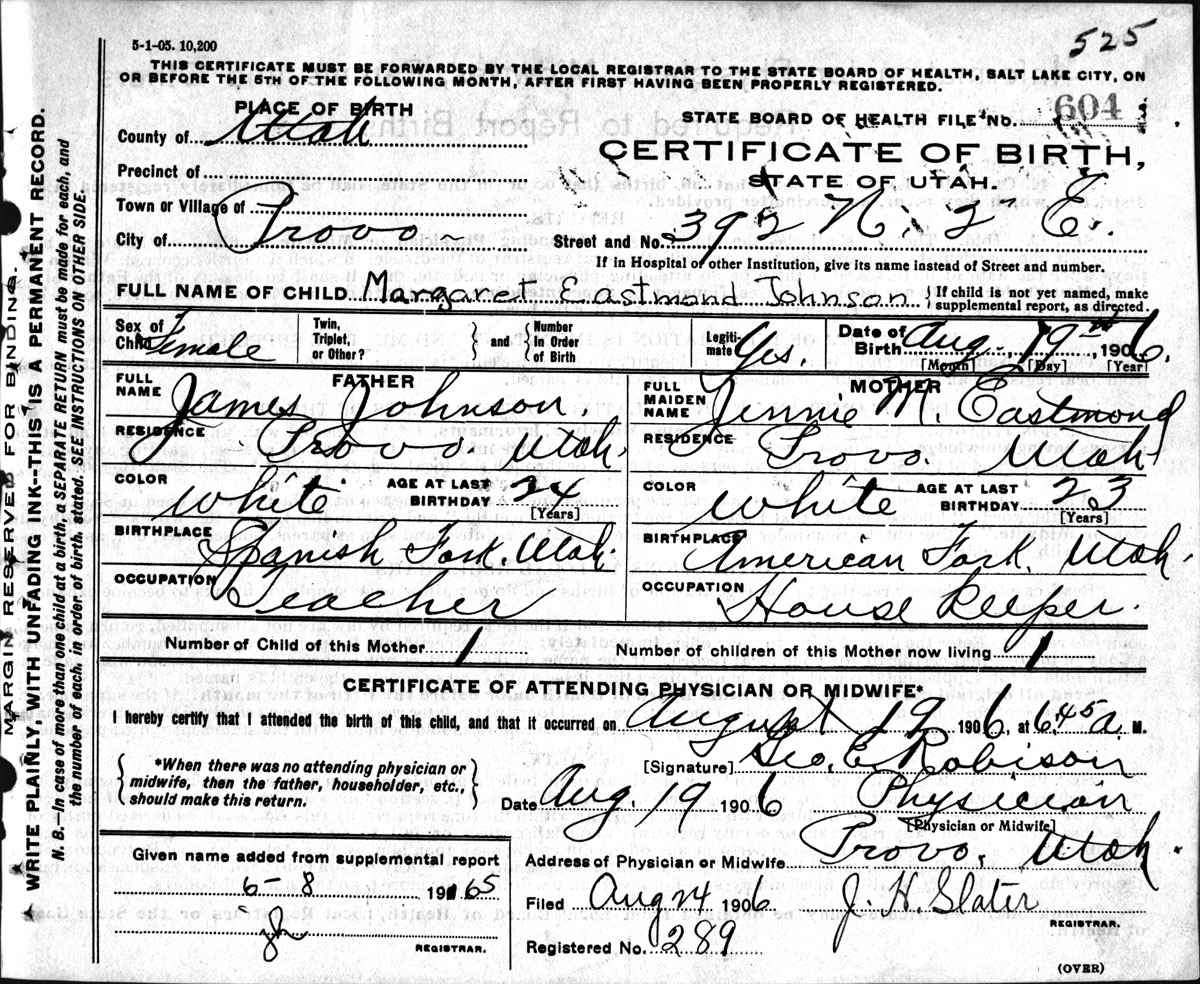 525
5-1-05. 10,200
THIS CERTIFICATE MUST BE FORWARDED BY THE LOCAL REGISTRAR TO THE STATE BOARD OF HEALTH, SALT LAKE CITY, ON
OR BEFORE THE 5TH OF THE FOLLOWING MONTH, AFTER FIRST HAVING BEEN PROPERLY REGISTERED.
PLACE OF BIRTH
County of Utah
Precinct of
Town or Village of
City of Provo
STATE BOARD OF HEALTH FILE NO. 604
CERTIFICATE OF BIRTH,
STATE OF UTAH.
Street and No. 392 N. 2 E.
If in Hospital or other Institution, give its name instead of Street and number.
FULL NAME OF CHILD Margaret Eastmond Johnson { If child is not yet named, make supplemental report, as directed.
Sex of Child Female Twin, Triplet, or Other? } and { Number In Order of Birth Legitimate Yes. Date of Birth Aug 19th 1906.
[Month] [Day] [Year]
FATHER
FULL NAME James Johnson.
RESIDENCE Provo. Utah.
COLOR White AGE AT LAST BIRTHDAY 24
[Years]
BIRTHPLACE Spanish Fork. Utah.
OCCUPATION Teacher
MOTHER
FULL MAIDEN NAME Jennie M. Eastmond
RESIDENCE Provo. Utah
COLOR White AGE AT LAST BIRTHDAY 23
[Years]
BIRTHPLACE American Fork. Utah
OCCUPATION House Keeper.
Number of Child of this Mother 1 Number of children of this Mother now living 1
CERTIFICATE OF ATTENDING PHYSICIAN OR MIDWIFE*
I hereby certify that I attended the birth of this child, and that it occurred on August 19 1906, at 6.45 a M.
{ *When there was no attending physician or midwife, then the father, householder, etc., should make this return. }
[Signature] Geo. E. Robison
Date Aug. 19 1906 Physician
[Physician or Midwife]
Address of Physician or Midwife Provo, Utah.
Given name added from supplemental report
6-8 1965
REGISTRAR.
Filed Aug 24 1906 J. H. Slater
REGISTRAR.
Registered No. 289
(OVER)
MARGIN RESERVED FOR BINDING.
WRITE PLAINLY, WITH UNFADING INK--THIS IS A PERMANENT RECORD.
N. B. In case of more than one child at a birth, a SEPARATE RETURN must be made for each, and
the number of each, in order of birth, stated. SEE INSTRUCTIONS ON OTHER SIDE.